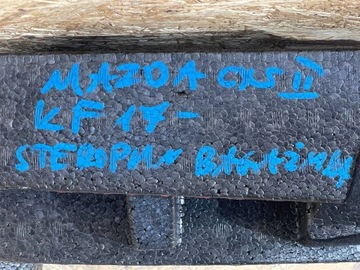 MAZDA CX5 II
KF 17-
STEROPIAN BAGAŻNIKA